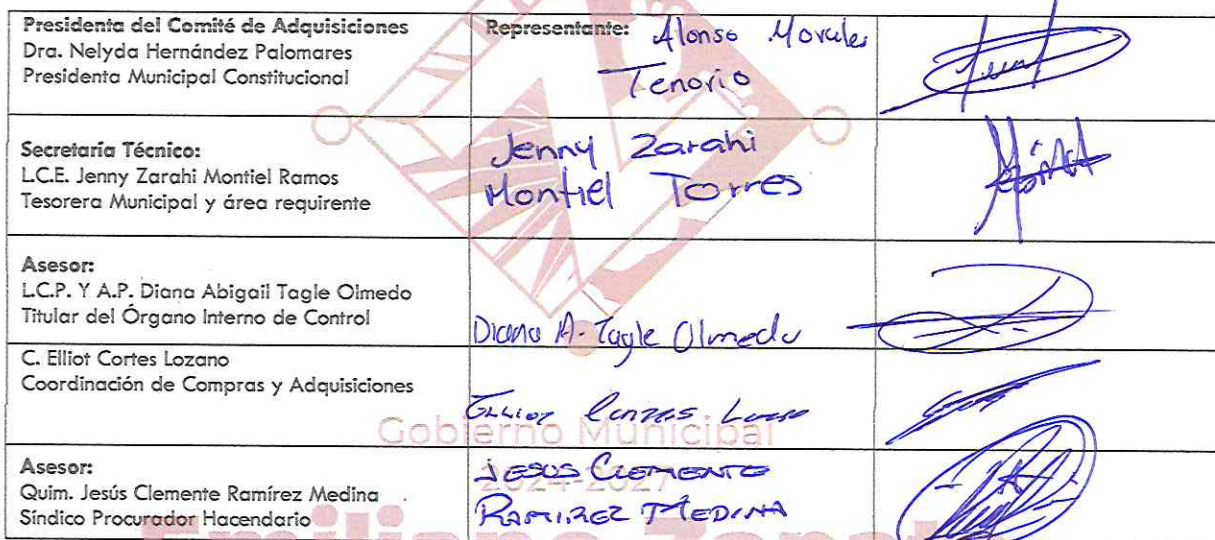 Presidenta del Comité de Adquisiciones
Dra. Nelyda Hernández Palomares
Presidenta Municipal Constitucional
Representante: Alonso Morales
Tenorio
Secretaría Técnico:
L.C.E. Jenny Zarahi Montiel Ramos
Tesorera Municipal y área requirente
Jenny Zarahi
Montiel Torres
Asesor:
L.C.P. Y A.P. Diana Abigail Tagle Olmedo
Titular del Órgano Interno de Control
Diana A. Tagle Olmedo
C. Elliot Cortes Lozano
Coordinación de Compras y Adquisiciones
Elliot Cortes
Gobierno Municipal
2024-2027
Asesor:
Quim. Jesús Clemente Ramírez Medina
Síndico Procurador Hacendario
JESUS CLEMENTE
RAMIREZ MEDINA
Emiliano Zapata